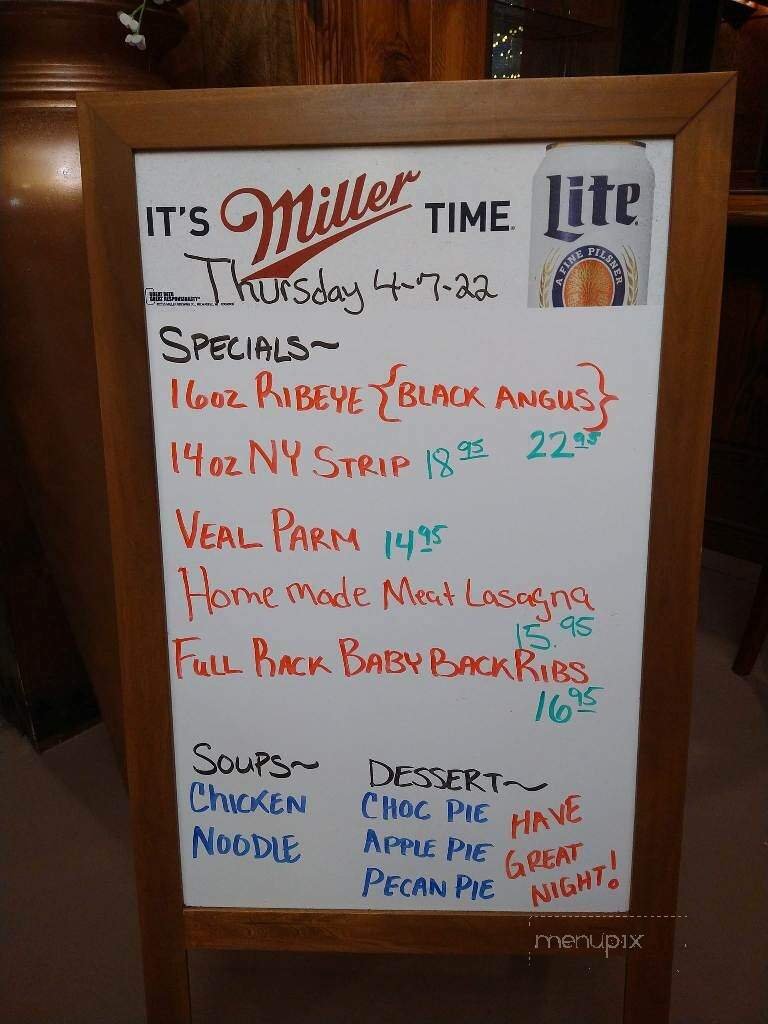 IT'S Miller TIME.
Lite
A FINE PILSNER
Thursday 4-7-22
GREAT BEER
GREAT RESPONSIBILITY
SPECIALS~
16oz RIBEYE {BLACK ANGUS}
22.95
14oz NY STRIP 18 95
VEAL PARM 14 95
Home made Meat Lasagna
15.95
FULL RACK BABY BACK RIBS
16 95
SOUPS~
CHICKEN
NOODLE
DESSERT~
CHOC PIE
APPLE PIE
PECAN PIE
HAVE
GREAT
NIGHT!
menupix